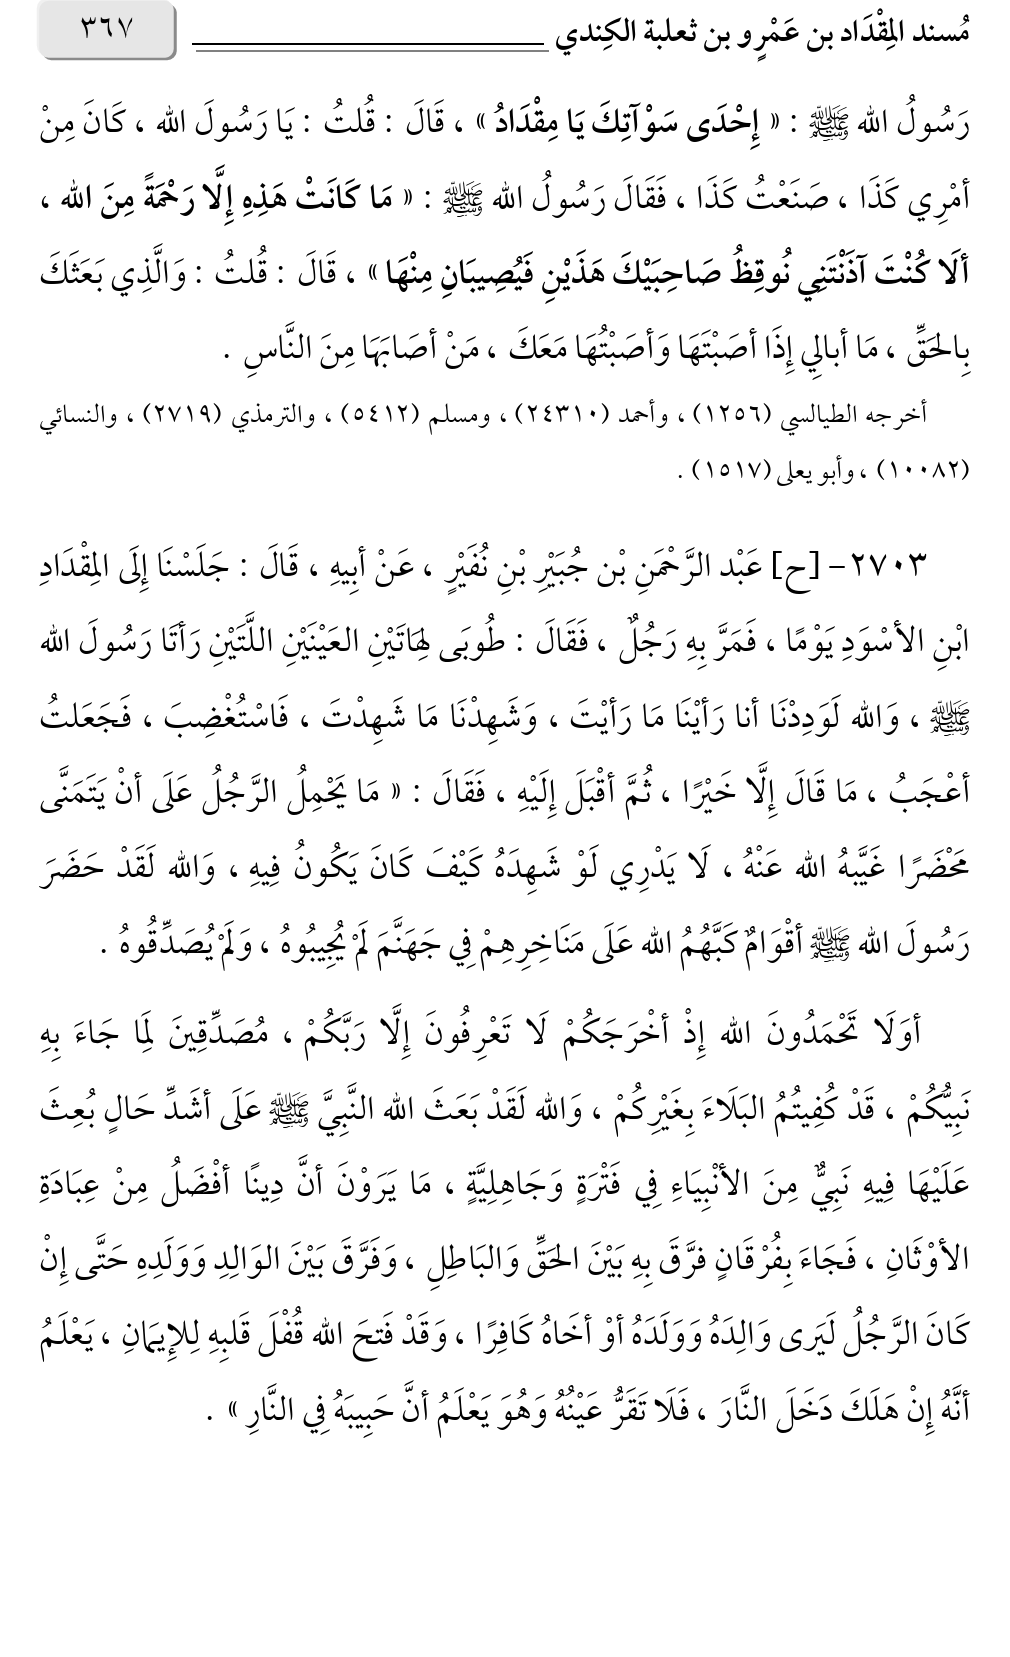 مُسند المِقْدَاد بن عَمْرٍو بن ثعلبة الكِندي ٣٦٧
رَسُولُ الله ﷺ : « إِحْدَى سَوْآتِكَ يَا مِقْدَادُ » ، قَالَ : قُلتُ : يَا رَسُولَ الله ، كَانَ مِنْ
أمْرِي كَذَا ، صَنَعْتُ كَذَا ، فَقَالَ رَسُولُ الله ﷺ : « مَا كَانَتْ هَذِهِ إِلَّا رَحْمَةً مِنَ الله ،
ألَا كُنْتَ آذَنْتَنِي نُوقِظُ صَاحِبَيْكَ هَذَيْنِ فَيُصِيبَانِ مِنْهَا » ، قَالَ : قُلتُ : وَالَّذِي بَعَثَكَ
بِالحَقِّ ، مَا أبالِي إِذَا أصَبْتَهَا وَأصَبْتُهَا مَعَكَ ، مَنْ أصَابَهَا مِنَ النَّاسِ .
أخرجه الطيالسي (١٢٥٦) ، وأحمد (٢٤٣١٠) ، ومسلم (٥٤١٢) ، والترمذي (٢٧١٩) ، والنسائي
(١٠٠٨٢) ، وأبو يعلى (١٥١٧) .
٢٧٠٣- [ح] عَبْد الرَّحْمَنِ بْن جُبَيْرِ بْنِ نُفَيْرٍ ، عَنْ أبِيهِ ، قَالَ : جَلَسْنَا إِلَى المِقْدَادِ
ابْنِ الأسْوَدِ يَوْمًا ، فَمَرَّ بِهِ رَجُلٌ ، فَقَالَ : طُوبَى لِهَاتَيْنِ العَيْنَيْنِ اللَّتَيْنِ رَأتَا رَسُولَ الله
ﷺ ، وَالله لَوَدِدْنَا أنا رَأيْنَا مَا رَأيْتَ ، وَشَهِدْنَا مَا شَهِدْتَ ، فَاسْتُغْضِبَ ، فَجَعَلتُ
أعْجَبُ ، مَا قَالَ إِلَّا خَيْرًا ، ثُمَّ أقْبَلَ إِلَيْهِ ، فَقَالَ : « مَا يَحْمِلُ الرَّجُلُ عَلَى أنْ يَتَمَنَّى
مَحْضَرًا غَيَّبهُ الله عَنْهُ ، لَا يَدْرِي لَوْ شَهِدَهُ كَيْفَ كَانَ يَكُونُ فِيهِ ، وَالله لَقَدْ حَضَرَ
رَسُولَ الله ﷺ أقْوَامٌ كَبَّهُمُ الله عَلَى مَنَاخِرِهِمْ فِي جَهَنَّمَ لَمْ يُجِيبُوهُ ، وَلَمْ يُصَدِّقُوهُ .
أوَلَا تَحْمَدُونَ الله إِذْ أخْرَجَكُمْ لَا تَعْرِفُونَ إِلَّا رَبَّكُمْ ، مُصَدِّقِينَ لِمَا جَاءَ بِهِ
نَبِيُّكُمْ ، قَدْ كُفِيتُمُ البَلَاءَ بِغَيْرِكُمْ ، وَالله لَقَدْ بَعَثَ الله النَّبِيَّ ﷺ عَلَى أشَدِّ حَالٍ بُعِثَ
عَلَيْهَا فِيهِ نَبِيٌّ مِنَ الأنْبِيَاءِ فِي فَتْرَةٍ وَجَاهِلِيَّةٍ ، مَا يَرَوْنَ أنَّ دِينًا أفْضَلُ مِنْ عِبَادَةِ
الأوْثَانِ ، فَجَاءَ بِفُرْقَانٍ فرَّقَ بِهِ بَيْنَ الحَقِّ وَالبَاطِلِ ، وَفَرَّقَ بَيْنَ الوَالِدِ وَوَلَدِهِ حَتَّى إِنْ
كَانَ الرَّجُلُ لَيَرى وَالِدَهُ وَوَلَدَهُ أوْ أخَاهُ كَافِرًا ، وَقَدْ فَتحَ الله قُفْلَ قَلبِهِ لِلإِيمَانِ ، يَعْلَمُ
أنَّهُ إِنْ هَلَكَ دَخَلَ النَّارَ ، فَلَا تَقَرُّ عَيْنُهُ وَهُوَ يَعْلَمُ أنَّ حَبِيبَهُ فِي النَّارِ » .